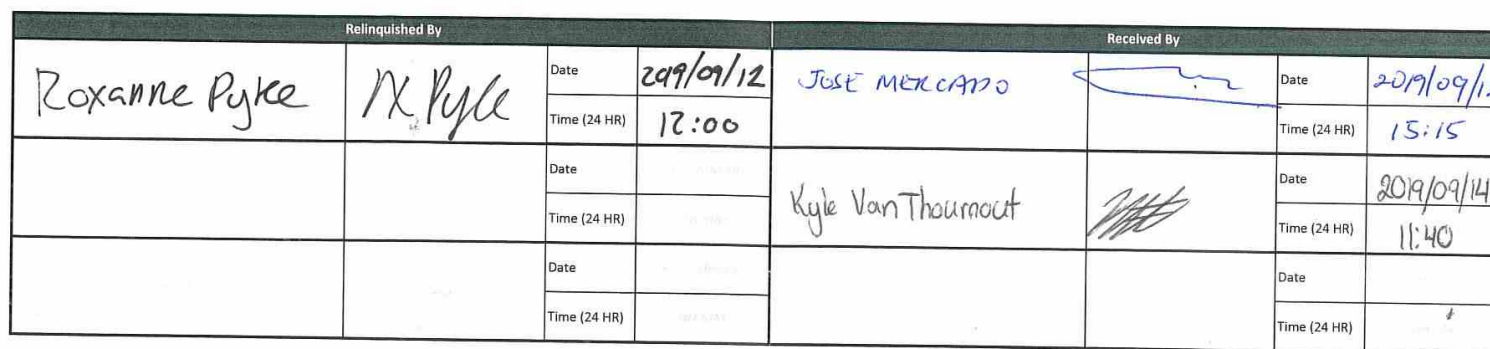 Relinquished By Received By
Roxanne Pyke R Pyke Date 2019/09/12 JOSE MERCADO Date 2019/09/1
Time (24 HR) 12:00 Time (24 HR) 15:15
Date Kyle Van Thournout Date 2019/09/14
Time (24 HR) Time (24 HR) 11:40
Date Date
Time (24 HR) Time (24 HR)